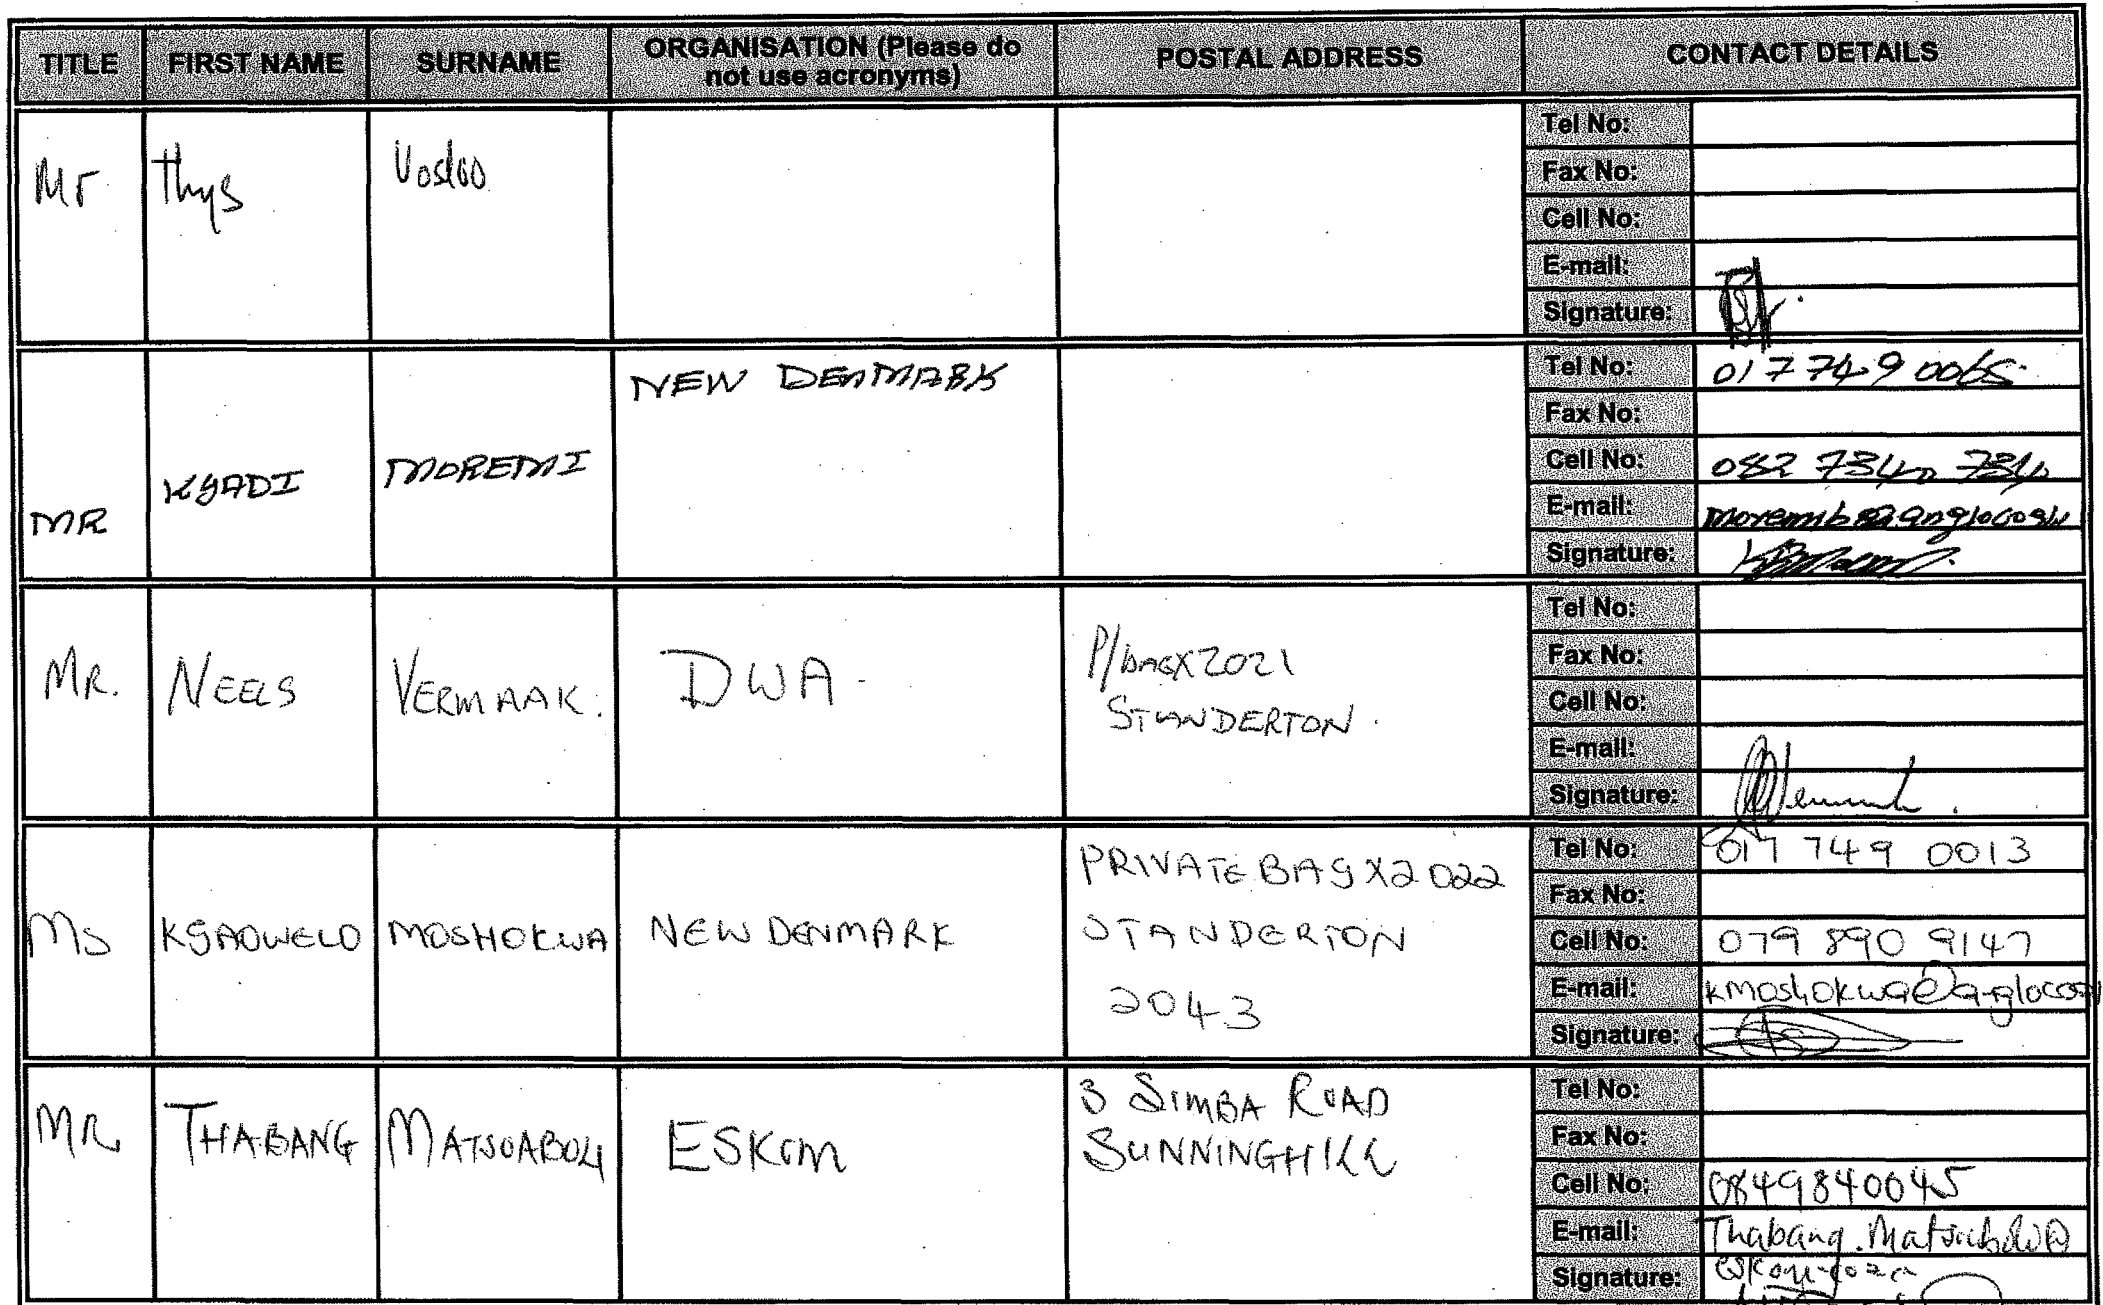 TITLE FIRST NAME SURNAME ORGANISATION (Please do not use acronyms) POSTAL ADDRESS CONTACT DETAILS
Mr Thys Vosloo
Tel No:
Fax No:
Cell No:
E-mail:
Signature:
MR KGADI MOREMI NEW DENMARK
Tel No: 017 749 0065
Fax No:
Cell No: 082 734
E-mail:
Signature:
MR. NEELS VERMAAK. DWA
P/bag X2021
STANDERTON.
Tel No:
Fax No:
Cell No:
E-mail:
Signature:
Ms KGAOWELO MOSHOKWA NEW DENMARK
PRIVATE BAG X2022
STANDERTON
2043
Tel No: 017 749 0013
Fax No:
Cell No: 079 890 9147
E-mail:
Signature:
MR THABANG ESKOM
3 SIMBA ROAD
SUNNINGHILL
Tel No:
Fax No:
Cell No: 0849840045
E-mail:
Signature: